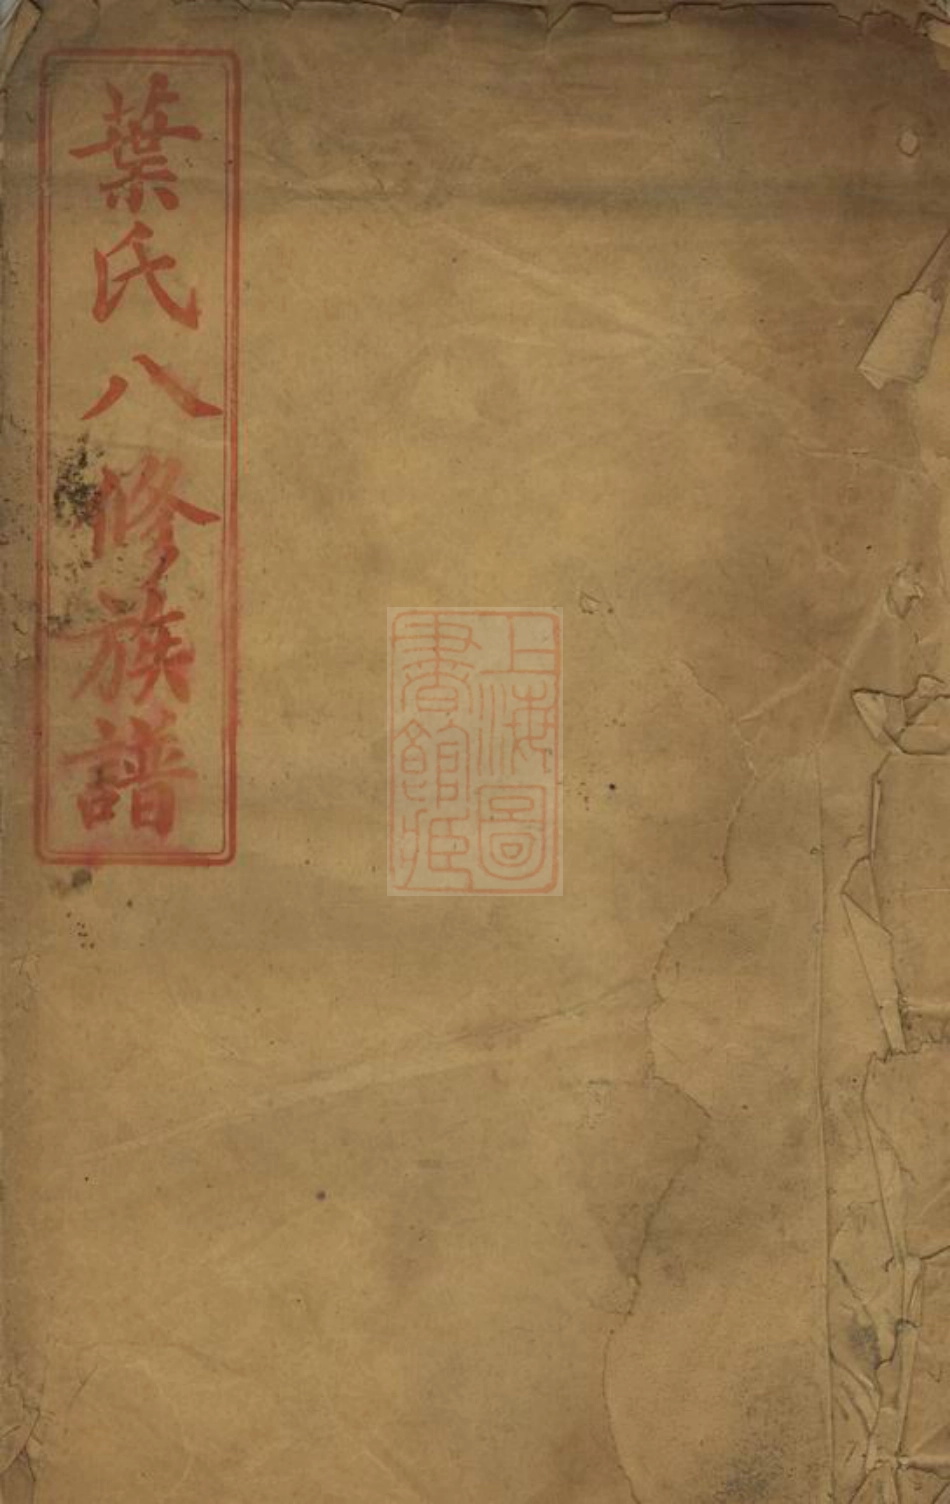 葉氏八修族譜
上海圖
書館藏